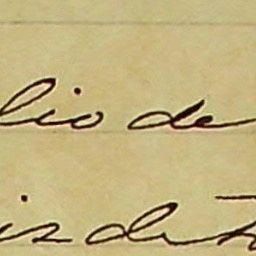 lio de
is de